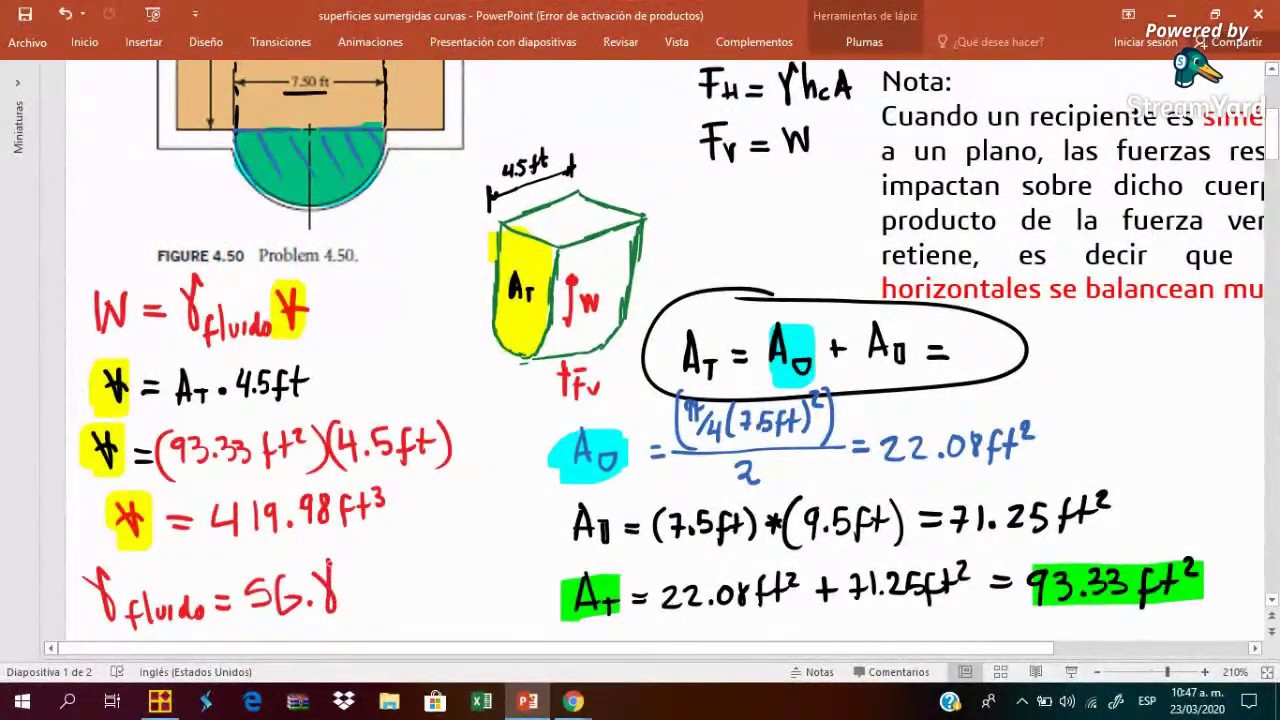 superficies sumergidas curvas - PowerPoint (Error de activación de productos)
Herramientas de lápiz
Archivo Inicio Insertar Diseño Transiciones Animaciones Presentación con diapositivas Revisar Vista Complementos Plumas ¿Qué desea hacer? Iniciar sesión Compartir
Powered by
StreamYard
Miniaturas
7.50 ft
FIGURE 4.50 Problem 4.50.
4.5ft
A_T
W
F_v
F_H = γh_cA
F_v = W
Nota:
Cuando un recipiente es sime
a un plano, las fuerzas res
impactan sobre dicho cuerp
producto de la fuerza ver
retiene, es decir que
horizontales se balancean mu
W = γ_fluido V
V = A_T · 4.5ft
V = (93.33 ft²)(4.5ft)
V = 419.98ft³
γ_fluido = SG.γ
A_T = A⌓ + A▯ =
A⌓ = (π/4(7.5ft)²)/2 = 22.08ft²
A▯ = (7.5ft)*(9.5ft) = 71.25ft²
A_T = 22.08ft² + 71.25ft² = 93.33 ft²
Diapositiva 1 de 2 Inglés (Estados Unidos) Notas Comentarios 210%
ESP
10:47 a. m.
23/03/2020